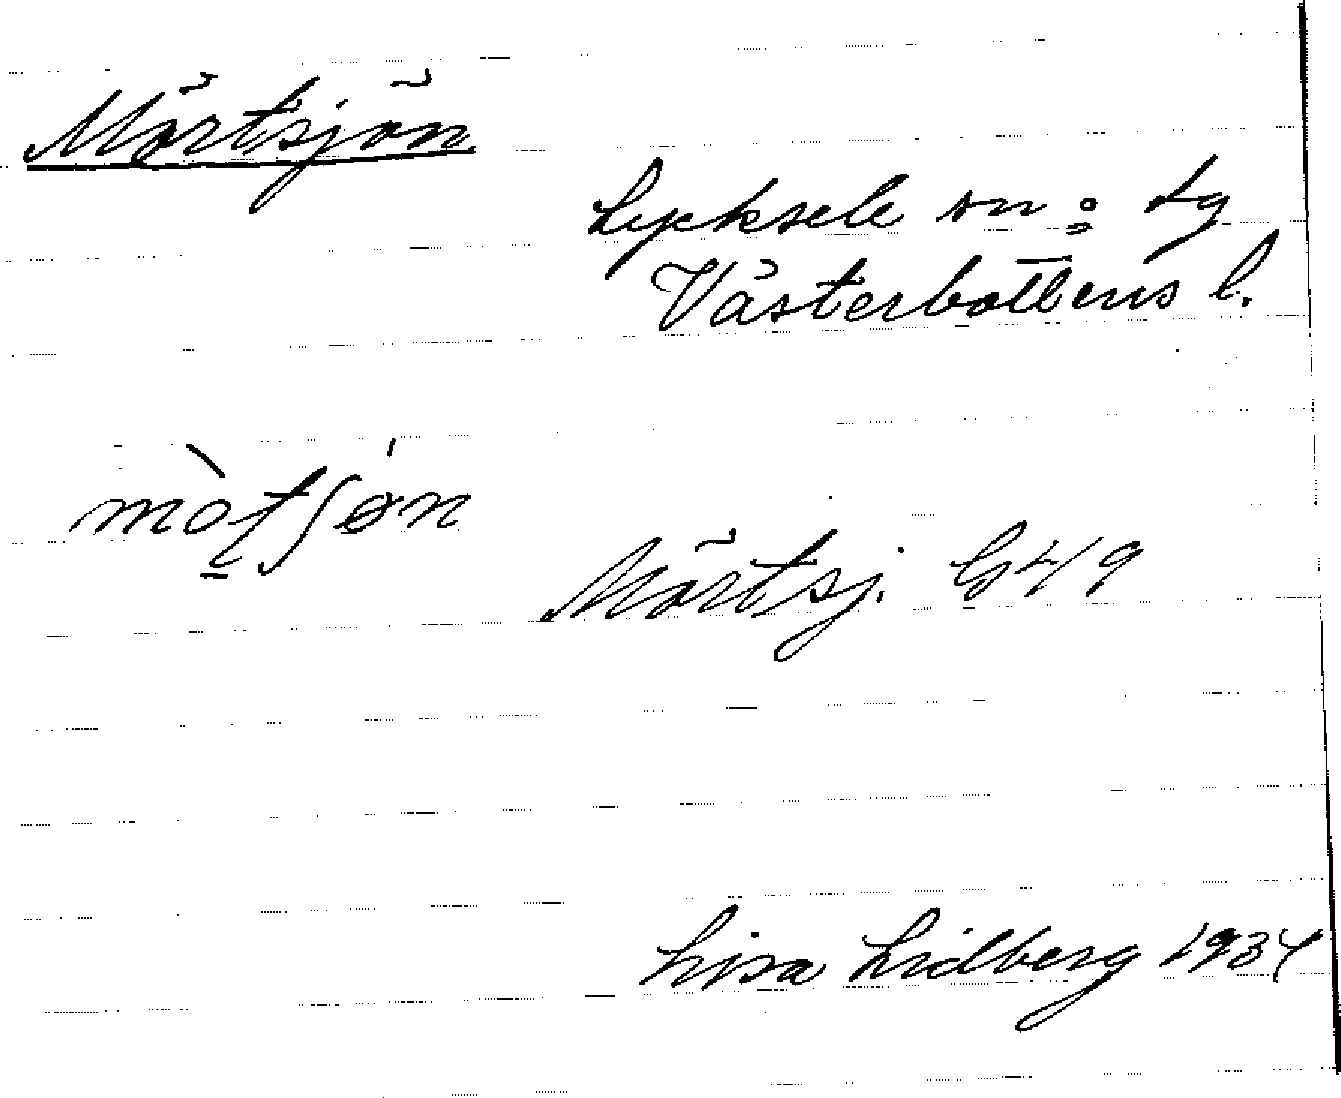 Mörtsjön
Lycksele sn o. lg
Västerbottens l.
mö̀ʈʃøn
Mörtsj. G49
Lisa Lidberg 1934